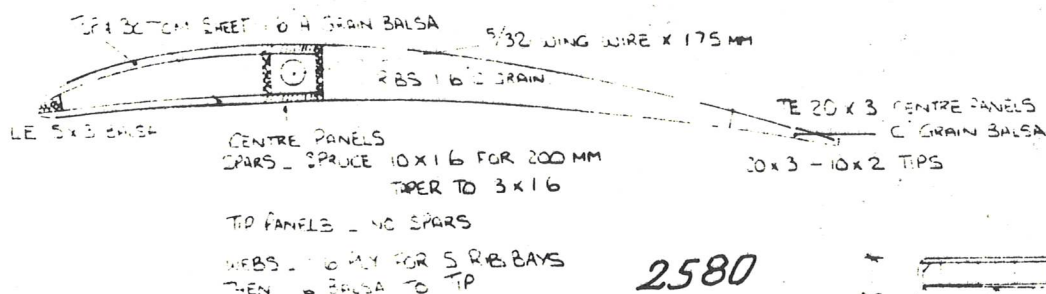 SHEET GRAIN BALSA
5/32 WING WIRE X 175 MM
GRAIN
LE 5x3 BALSA
TE 20 x 3 CENTRE PANELS
C GRAIN BALSA
20 x 3 - 10 x 2 TIPS
CENTRE PANELS
SPARS - SPRUCE 10 X 1 6 FOR 200 MM
TAPER TO 3 X 1 6
TIP PANELS - NO SPARS
WEBS - PLY FOR 5 RIB BAYS
THEN BALSA TO TIP
2580